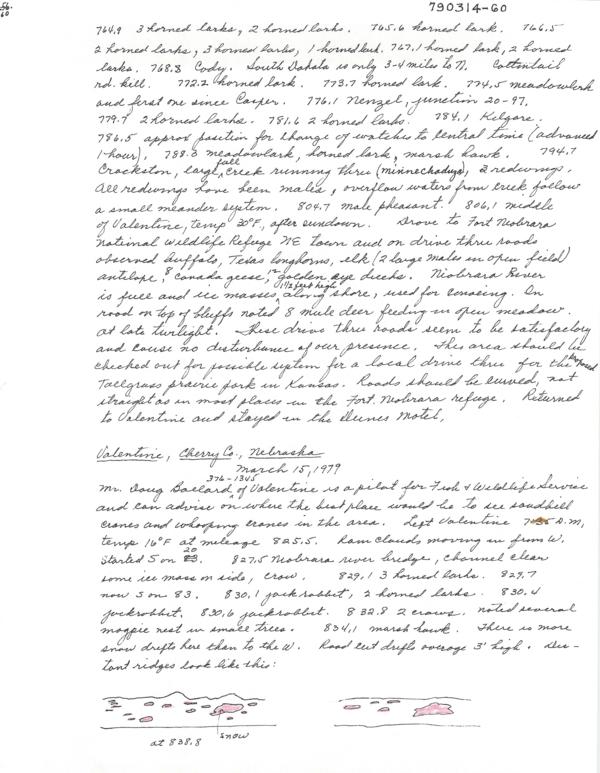 56.
60
790314-60
764.9 3 horned larks, 2 horned lark. 765.6 horned lark. 766.5
2 horned larks, 3 horned larks, 1 horned lark. 767.1 horned lark, 2 horned
larks. 768.8 Cody. South Dakota is only 3-4 miles to N. Cottontail
rd. kill. 772.2 horned lark. 773.7 horned lark. 774.5 meadowlark
and first one since Casper. 776.1 Nenzel, junction 20-97.
779.7 2 horned larks. 781.6 2 horned larks. 784.1 Kilgore.
786.5 approx position for change of watches to Central time (advanced
1 hour). 788.3 meadowlark, horned lark, marsh hawk. 794.7
Crookston, large full creek running thru (Minnechaduza), 2 redwings.
All redwings have been males, overflow waters from creek follow
a small meander system. 804.7 male pheasant. 806.1 middle
of Valentine, temp 30°F, after sundown. Drove to Fort Niobrara
National Wildlife Refuge NE town and on drive thru roads
observed buffalo, Texas longhorns, elk (2 large males in open field)
antelope, 8 Canada geese, 12 golden eye ducks. Niobrara River
is full and ice masses 1 1/2 feet high along shore, used for canoeing. On
road on top of bluffs noted 8 mule deer feeding in open meadow.
at late twilight. These drive thru roads seem to be satisfactory
and cause no disturbance of our presence. This area should be
checked out for possible system for a local drive thru for the proposed
Tallgrass prairie park in Kansas. Roads should be curved, not
straight as in most places in the Fort Niobrara refuge. Returned
to Valentine and stayed in the Dunes Motel.
Valentine, Cherry Co., Nebraska
March 15, 1979
376-1345
Mr. Doug of Valentine is a pilot for Fish & Wildlife Service
and can advise on where the best place would be to see sandhill
cranes and whooping cranes in the area. Left Valentine A.M,
temp 16°F at mileage 825.5. Rain clouds moving in from W.
Started S on 20. 827.5 Niobrara river bridge, channel clear
some ice mass on side, crow. 829.1 3 horned larks. 829.7
now S on 83. 830.1 jackrabbit, 2 horned larks. 830.4
jackrabbit. 830.6 jackrabbit. 832.8 2 crows. noted several
magpie nest in small trees. 834.1 marsh hawk. There is more
snow drifts here than to the W. Road cut drifts average 3' high. Dis-
tant ridges look like this:
snow
at 838.8